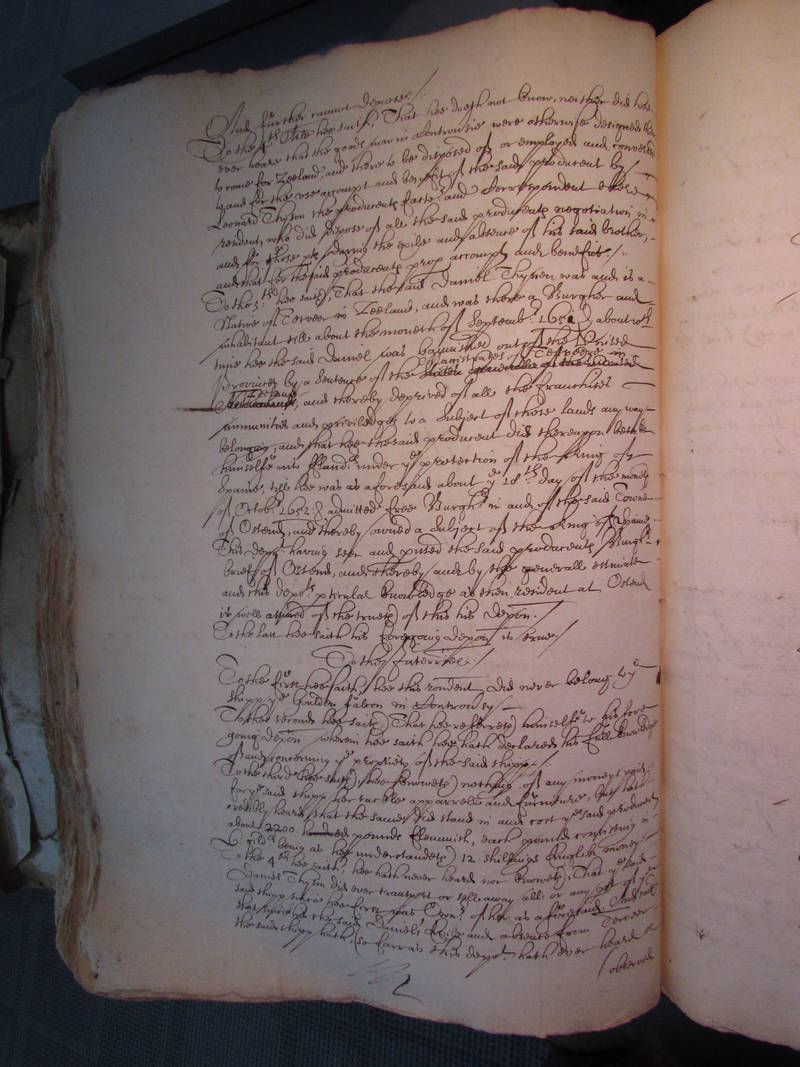 And further cannot depose./
To the 4th Arle hee saith, That hee doth not know, neither did hee
ever heare that the goods now in Controversie were otherwise designed then
to come for Zeeland, and there to be disposed of or employed and converted
to and for the use accompt and benefit of the said producent by
Leonard Thyson the producents factor and Correspondent there
resident, who did dispose of all the said producents negotiation in
and for those pts during the exile and absence of his said brother,
and that for the said producents prop accompt and benefit./.
To the 5th hee saith, That the said Daniel Thysen was and is a
Native of Terveer in Zeeland, and was there a Burgher and
inhabitant till about the moneth of Septembr 1651 about wch
time hee the said Daniel was bannished out of the United
Provinces by a sentence of the Magistrates of Terveere in
Zeeland, and thereby deprived of all the franchises
immunities and priviledges to a Subject of those lands any way
belonging, and that hee the said producent did thereupon betake
himselfe into flandrs under ye protection of the King of
Spaine, till hee was as aforesaid about ye 18th day of the moneth
of Octobr 1652 admitted free Burghr in and of the said Towne
of Ostend, and thereby owned a Subject of the King of Spaine,
This depot having seen and perused the said producents Burghr
briefe of Ostend, and thereby and by the generall estimate
and this depots pticular knowledge as then resident at Ostend
is well assured of the trueth of this his depon.
To the last hee saith his foregoing depon is true./
To the Interries./
To the first hee saith, hee this rondent did never belong to ye
shipp ye Goulden falcon in Controversy
To the second hee saith, That hee referreth himselfe to his fore
going depon wherein hee saith hee hath declared his full knowledge
of and concerning ye propriety of the said shipp./.
To the third hee saith, hee knoweth nothing of any moneys paid
for ye said shipp her tackle apparrell and furniture, but hath
credibly heard, that the same did stand in and cost ye said producent
about 2200 pounds flemmish, each pound consisting of
6 gildrs being as hee understandeth 12 shillings English money
To the 4th hee saith, hee hath never heard nor knoweth, That ye said
Daniel Thyson did ever transport or sell away all or any pt of ye
said shipp since hee first was Ownr of her as aforesaid And saith
that since the said Daniels Exile and absence from Terveer
the said shipp hath (so farr as this depot hath ever heard or
observed